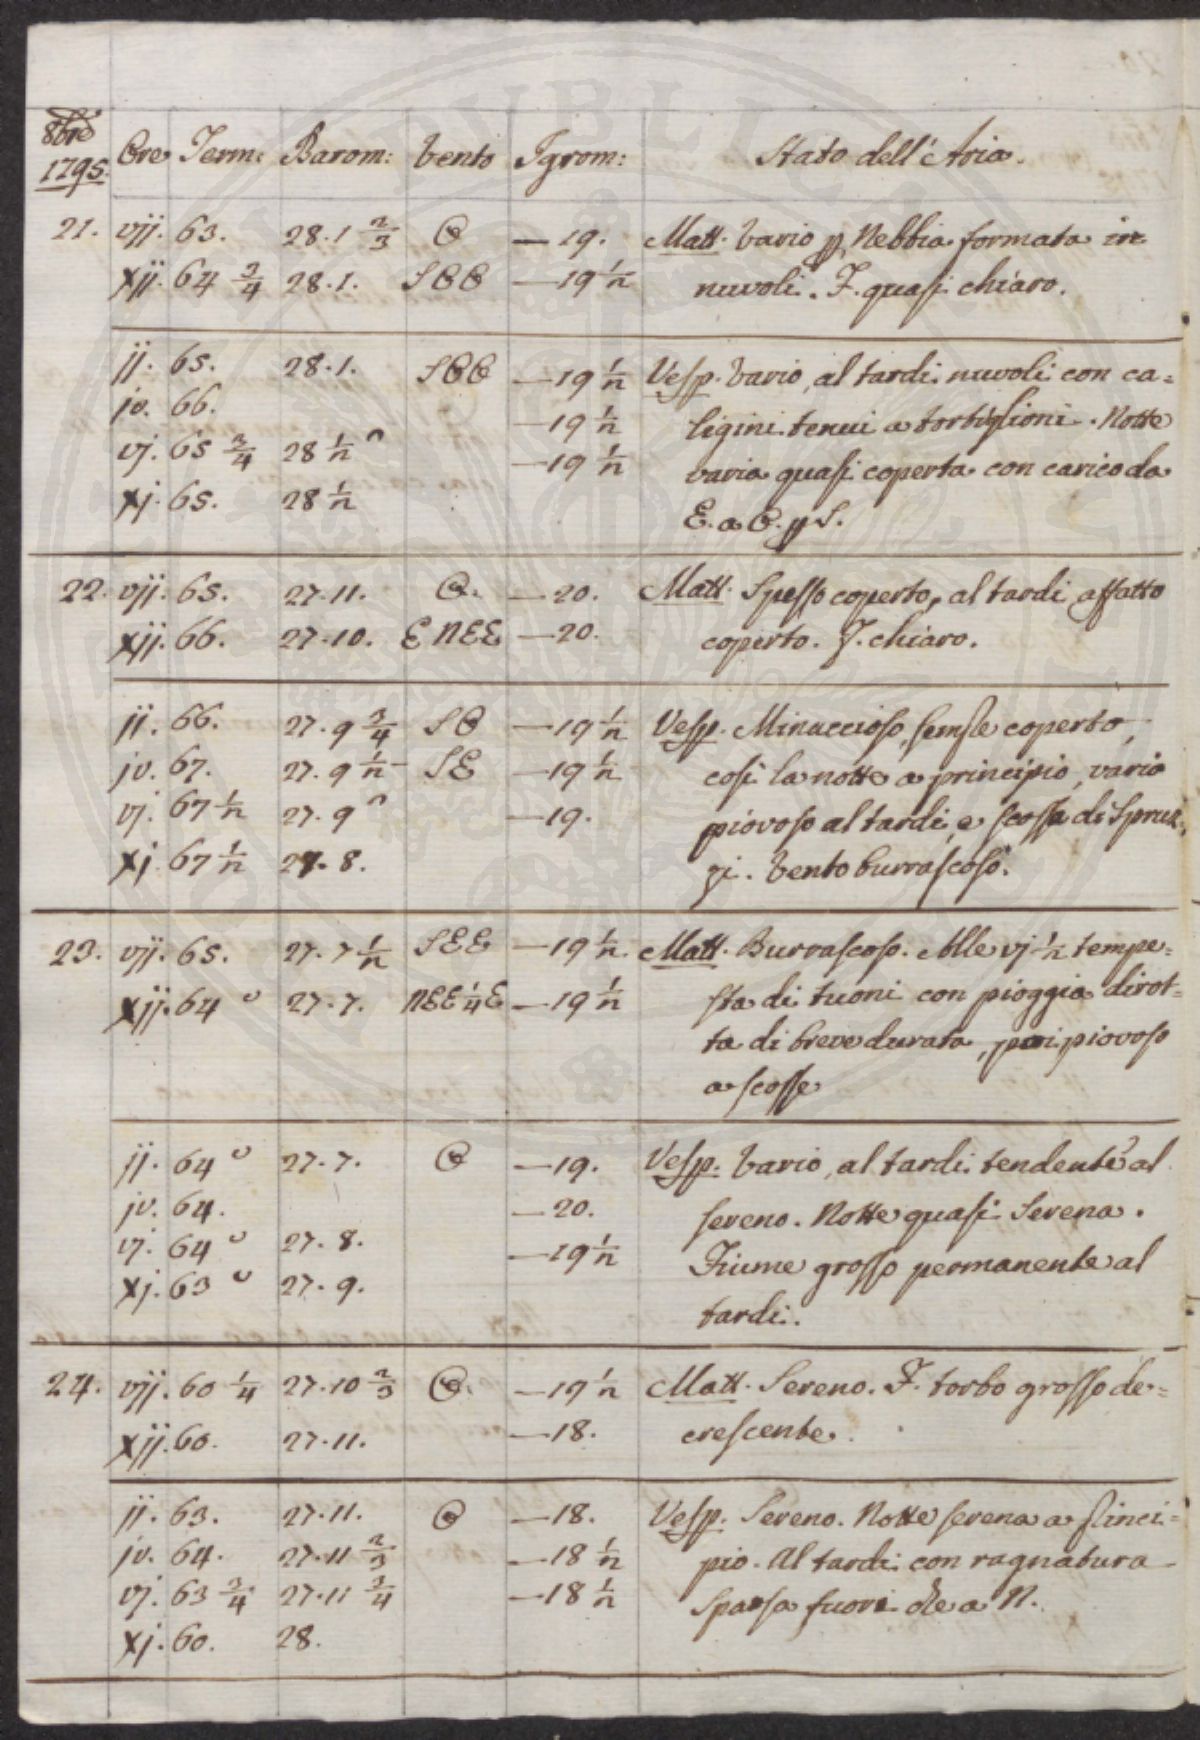 8bre
1795. Ore Term: Barom: Vento Igrom: Stato dell'Aria.
21. vij. 63. 28.1 2/3 O — 19. Matt. Vario p Nebbia formata in
xij. 64 3/4 28.1. SOO — 19 1/2 nuvoli. F. quasi chiaro.
ij. 65. 28.1. SOO — 19 1/2 Vesp. Vario, al tardi nuvoli con ca=
iv. 66. — 19 1/2 ligini tenui a tortiglioni. Notte
vj. 65 3/4 28 1/2 — 19 1/2 varia quasi coperta con carico da
xj. 65. 28 1/2 E. a O. p S.
22. vij. 65. 27.11. O. — 20. Matt. Spesso coperto, al tardi affatto
xij. 66. 27.10. E NEE — 20. coperto. F. chiaro.
ij. 66. 27.9 3/4 SO — 19 1/2 Vesp. Minaccioso, semple coperto,
iv. 67. 27.9 1/2 SE — 19 1/2 così la notte a principio, vario
vj. 67 1/2 27.9 — 19. piovoso al tardi, e scossa di Spruz=
xj. 67 1/2 27.8. zi. Vento burrascoso.
23. vij. 65. 27.7 1/2 SEE — 19 1/2. Matt. Burrascoso. Alle vj 1/2 tempe=
xij. 64 27.7. NEE 1/4 E — 19 1/2 sta di tuoni con pioggia dirot=
ta di breve durata, poi piovoso
a scosse
ij. 64 27.7. O — 19. Vesp. Vario, al tardi tendente al
iv. 64. — 20. sereno. Notte quasi Serena.
vj. 64 27.8. — 19 1/2 Fiume grosso permanente al
xj. 63 27.9. tardi.
24. vij. 60 1/4 27.10 2/3 O. — 19 1/2 Matt. Sereno. F. torbo grosso de=
xij. 60. 27.11. — 18. crescente.
ij. 63. 27.11. O — 18. Vesp. Sereno. Notte serena a princi=
iv. 64. 27.11 2/3 — 18 1/2 pio. Al tardi con ragnatura
vj. 63 3/4 27.11 3/4 — 18 1/2 sparsa fuori che a N.
xj. 60. 28.